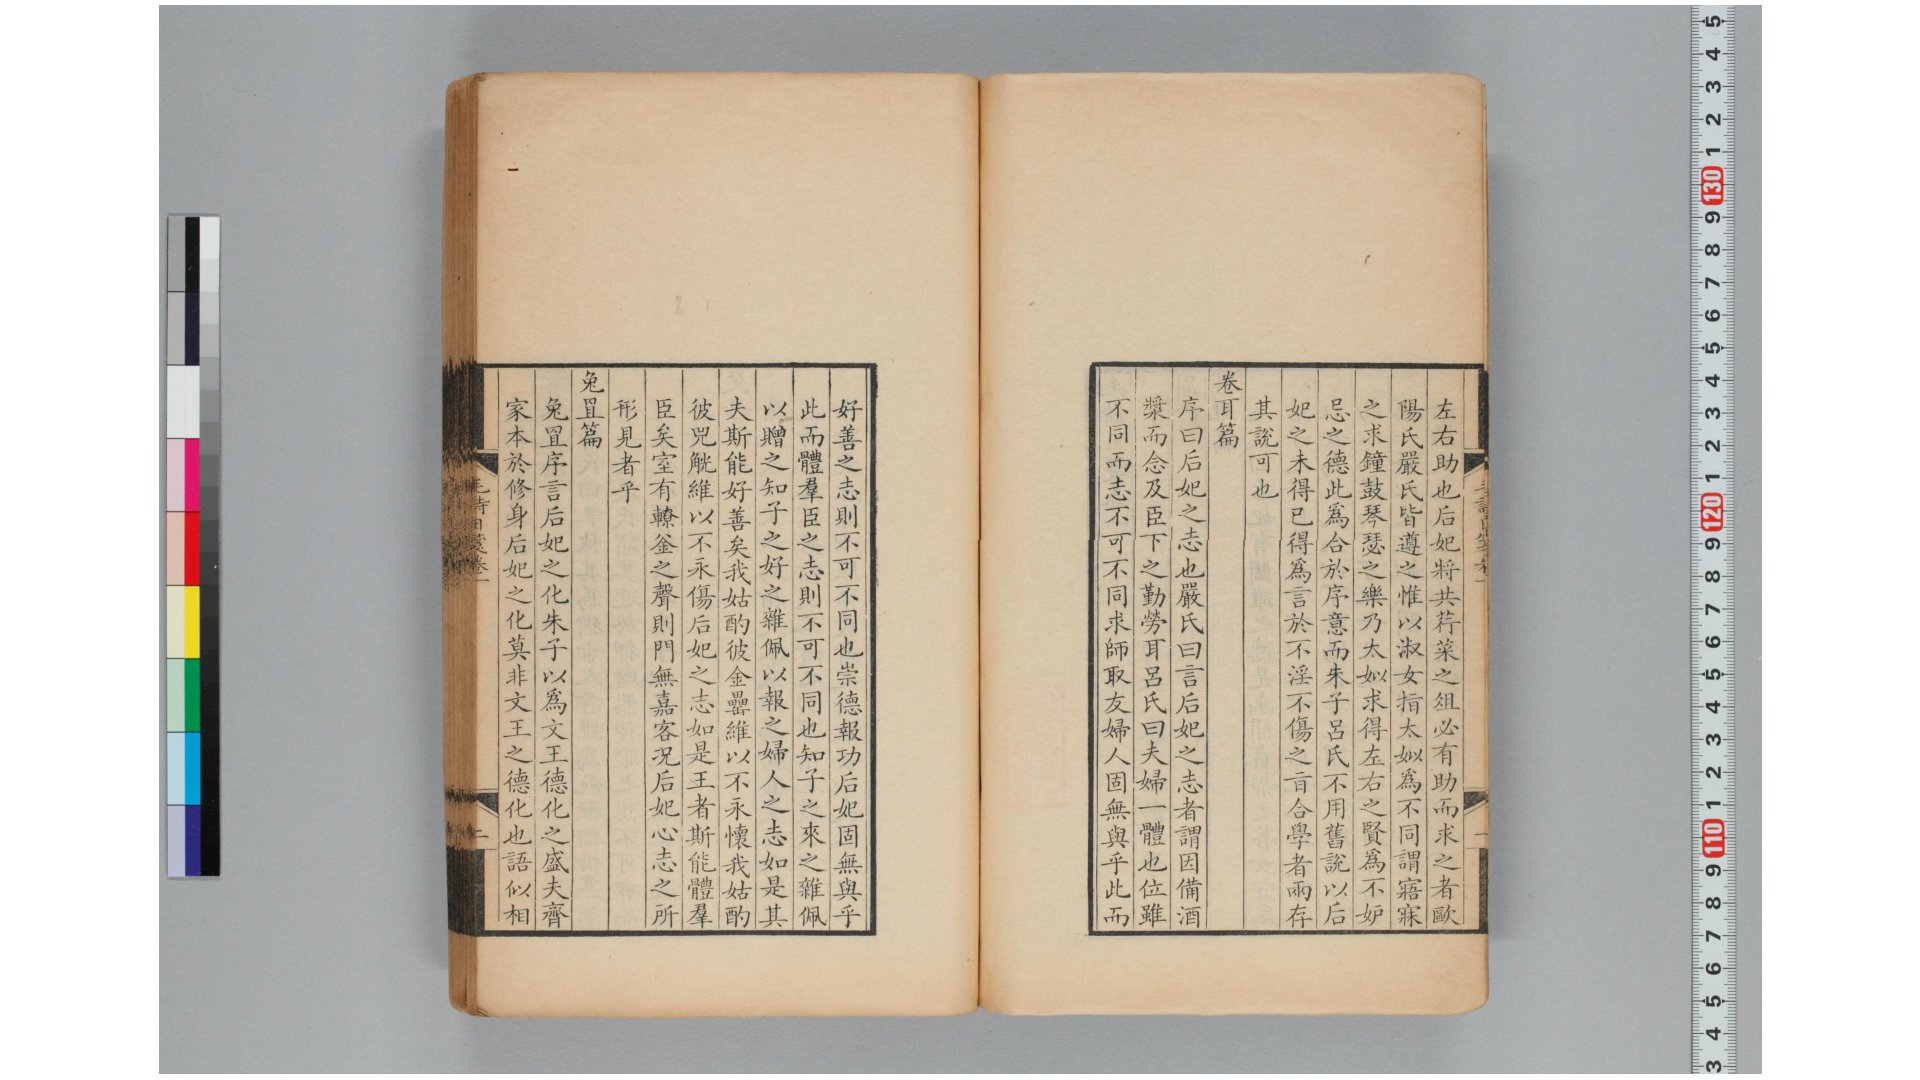 左右助也后妃將共荇菜之俎必有助而求之者歐
陽氏嚴氏皆遵之惟以淑女指太姒爲不同謂寤寐
之求鐘鼓琴瑟之樂乃太姒求得左右之賢爲不妒
忌之德此爲合於序意而朱子呂氏不用舊說以后
妃之未得已得爲言於不淫不傷之旨合學者兩存
其說可也
卷耳篇
序曰后妃之志也嚴氏曰言后妃之志者謂因備酒
漿而念及臣下之勤勞耳呂氏曰夫婦一體也位雖
不同而志不可不同求師取友婦人固無與乎此而
好善之志則不可不同也崇德報功后妃固無與乎
此而體羣臣之志則不可不同也知子之來之雜佩
以贈之知子之好之雜佩以報之婦人之志如是其
夫斯能好善矣我姑酌彼金罍維以不永懷我姑酌
彼兕觥維以不永傷后妃之志如是王者斯能體羣
臣矣室有轑釜之聲則門無嘉客況后妃心志之所
形見者乎
兔罝篇
兔罝序言后妃之化朱子以爲文王德化之盛夫齊
家本於修身后妃之化莫非文王之德化也語似相
毛詩日箋卷一
二
5 4 3 2 1 130 9 8 7 6 5 4 3 2 1 120 9 8 7 6 5 4 3 2 1 110 9 8 7 6 5 4 3